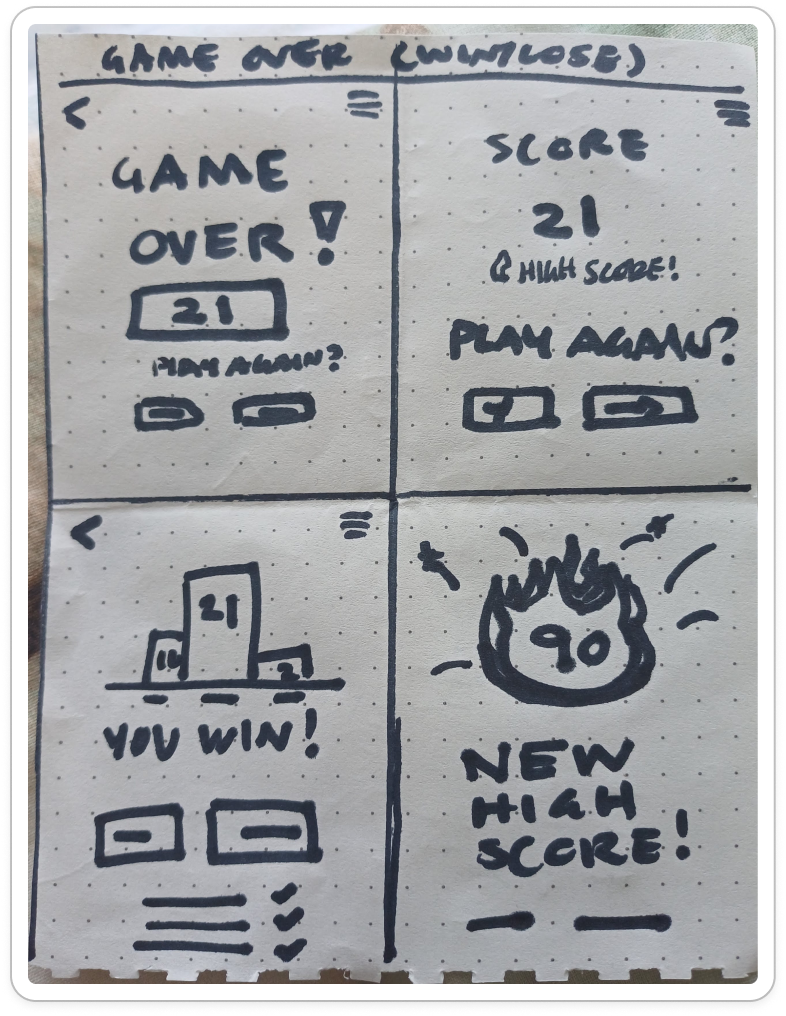 GAME OVER (WIN/LOSE)
GAME
OVER!
21
PLAY AGAIN?
SCORE
21
HIGH SCORE!
PLAY AGAIN?
21
2
YOU WIN!
90
NEW
HIGH
SCORE!